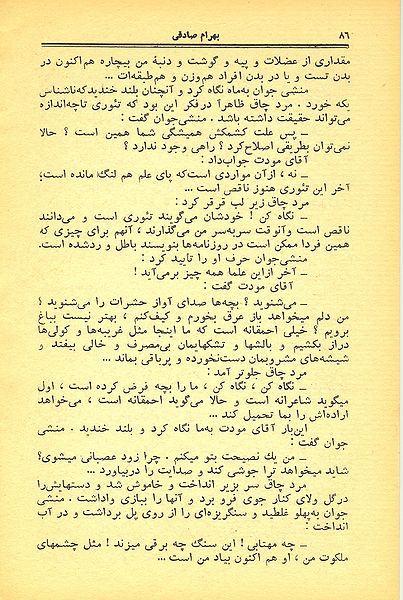 ۸۶
بهرام صادقی
مقداری از عضلات و پیه و گوشت و دنبهٔ من بیچاره هم‌اکنون در
بدن تست و یا در بدن افراد هم‌وزن و هم‌طبقه‌ات ...
منشی جوان به‌ماه نگاه کرد و آنچنان بلند خندیدکه‌ناشناس
یکه خورد . مرد چاق ظاهراً درفکر این بود که تئوری تاچه‌اندازه
می‌تواند حقیقت داشته باشد . منشی‌جوان گفت :
ـ پس علت کشمکش همیشگی شما همین است ؟ حالا
نمی‌توان بطریقی اصلاح‌کرد ؟ راهی وجود ندارد ؟
آقای مودت جواب‌داد :
ـ نه ، ازآن مواردی است‌که پای علم هم لنگ مانده است؛
آخر این تئوری هنوز ناقص است ...
مرد چاق زیر لب قرقر کرد :
ـ نگاه کن ! خودشان می‌گویند تئوری است و می‌دانند
ناقص است وآنوقت سربه‌سر من می‌گذارند ، آنهم برای چیزی که
همین فردا ممکن است در روزنامه‌ها بنویسند باطل و ردشده است.
منشی‌جوان حرف او را تایید کرد :
ـ آخر ازاین علما همه چیز برمی‌آید !
آقای مودت گفت :
ـ می‌شنوید ؟ بچه‌ها صدای آواز حشرات را می‌شنوید ؟
من دلم میخواهد باز عرق بخورم و کیف‌کنم ، بهتر نیست بباغ
برویم ؟ خیلی احمقانه است که ما اینجا مثل غریبه‌ها و کولی‌ها
دراز بکشیم و بالشها و تشکهایمان بی‌مصرف و خالی بیفتد و
شیشه‌های مشروبمان دست‌نخورده و پرباقی بماند ...
مرد چاق جلوتر آمد :
ـ نگاه کن ، نگاه کن ، ما را بچه فرض کرده است ، اول
میگوید شاعرانه است و حالا می‌گوید احمقانه است ، می‌خواهد
اراده‌اش را بما تحمیل کند ...
این‌بار آقای مودت به‌ما نگاه کرد و بلند خندید . منشی
جوان گفت :
ـ من یک نصیحت بتو میکنم . چرا زود عصبانی میشوی؟
شاید میخواهد ترا جوشی کند و صدایت را دربیاورد ...
مرد چاق سر بزیر انداخت و خاموش شد و دستهایش‌را
درگل ولای کنار جوی فرو برد و آنها را ببازی واداشت . منشی
جوان به‌پهلو غلطید و سنگریزه‌ای را از روی پل برداشت و در آب
انداخت :
ـ چه مهتابی ! این سنگ چه برقی میزند ! مثل چشمهای
ملکوت من ، او هم اکنون بیاد من است ...